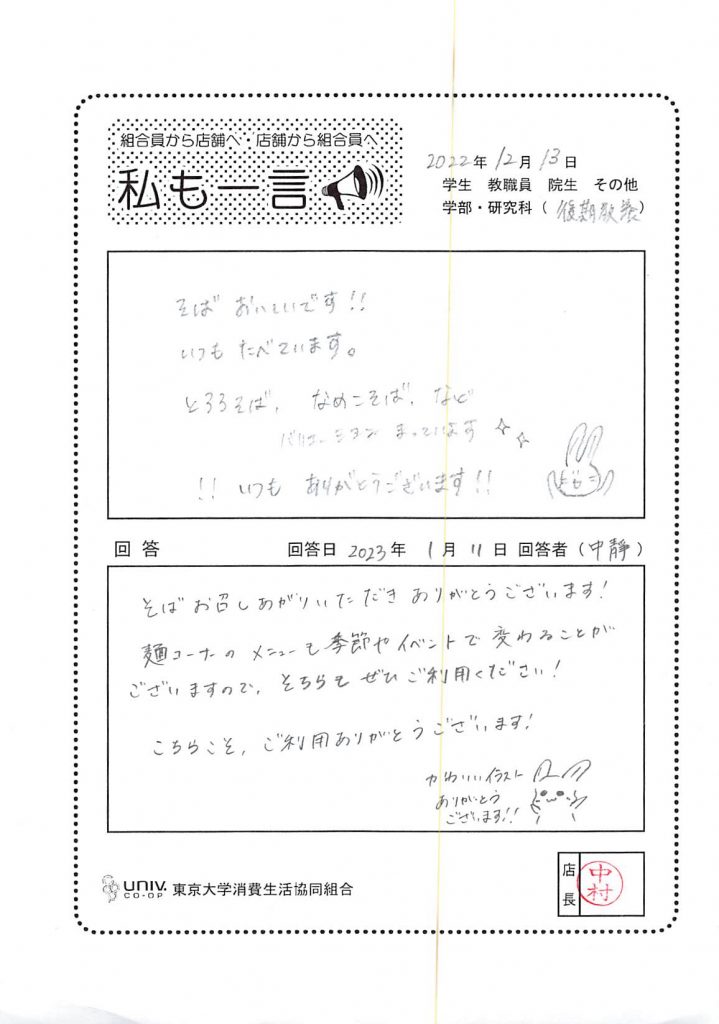 組合員から店舗へ・店舗から組合員へ
私も一言
2022年 12月 13日
学生 教職員 院生 その他
学部・研究科（後期教養）
そば おいしいです!!
いつも たべています。
とろろそば、なめこそば、など
バリエーション まっています
!! いつも ありがとうございます!!
回答 回答日 2023年 1月 11日 回答者（中静）
そばお召しあがりいただき ありがとうございます!
麺コーナーの メニューも季節やイベントで 変わることが
ございますので、そちらも ぜひ ご利用ください!
こちらこそ、ご利用ありがとうございます!
かわいいイラスト
ありがとう
ございます!!
UNIV. CO-OP 東京大学消費生活協同組合
店長 中村